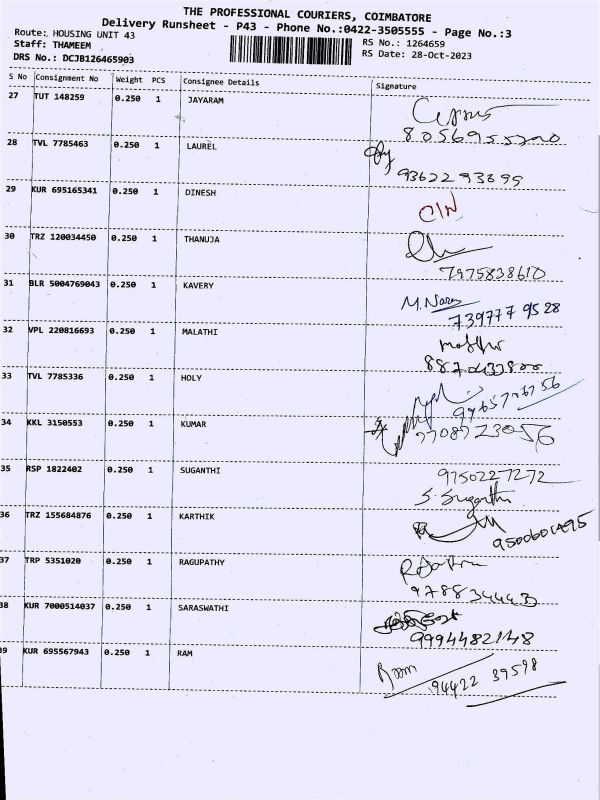 THE PROFESSIONAL COURIERS, COIMBATORE
Delivery Runsheet - P43 - Phone No.:0422-3505555 - Page No.:3
Route: HOUSING UNIT 43
RS No.: 1264659
Staff: THAMEEM
RS Date: 28-Oct-2023
DRS No.: DCJB126465903
S No Consignment No Weight PCS Consignee Details Signature
27 TUT 148259 0.250 1 JAYARAM
28 TVL 7785463 0.250 1 LAUREL
9362293699
29 KUR 695165341 0.250 1 DINESH
30 TRZ 120034450 0.250 1 THANUJA
7975838610
31 BLR 5004769043 0.250 1 KAVERY
739777 9528
32 VPL 220816693 0.250 1 MALATHI
33 TVL 7785336 0.250 1 HOLY
34 KKL 3150553 0.250 1 KUMAR
7708723056
35 RSP 1822402 0.250 1 SUGANTHI
9750227272
S. Suganthi
36 TRZ 155684876 0.250 1 KARTHIK
37 TRP 5351020 0.250 1 RAGUPATHY
38 KUR 7000514037 0.250 1 SARASWATHI
9994482148
39 KUR 695567943 0.250 1 RAM
94422 39598